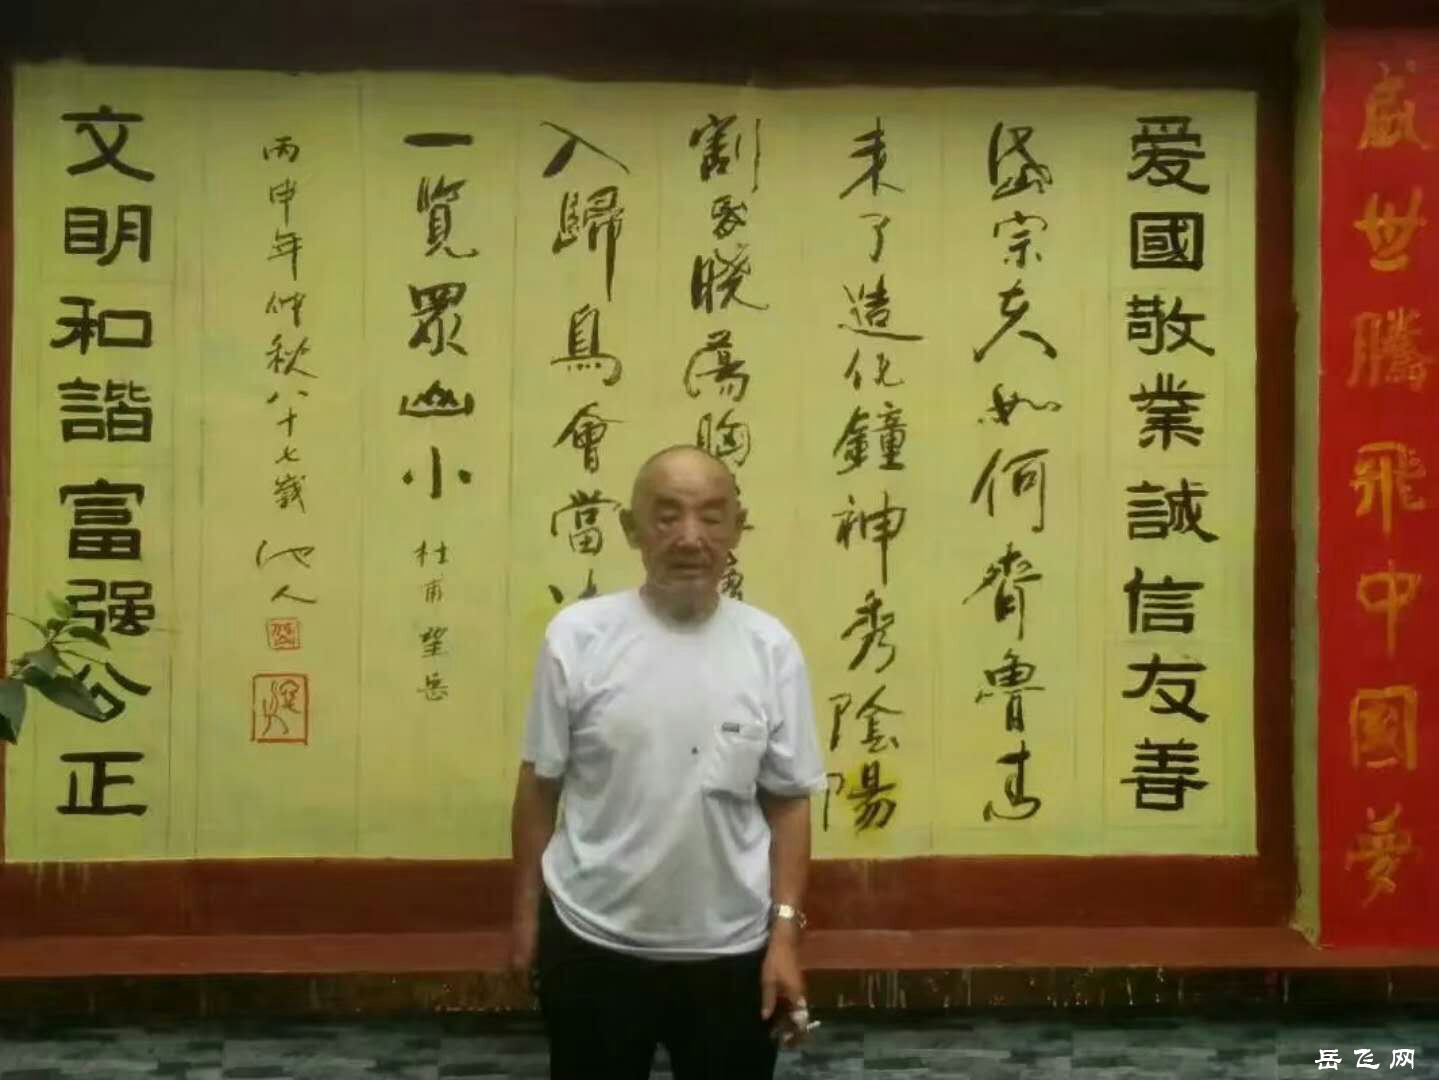 盛世騰飛中國夢
爱國敬業誠信友善
岱宗夫如何齊魯青
未了造化鐘神秀陰陽
割昏曉蕩胸
入歸鳥會當
一覽眾山小 杜甫望岳
丙申年仲秋八十七歲 池人
文明和諧富强公正
岳飞网